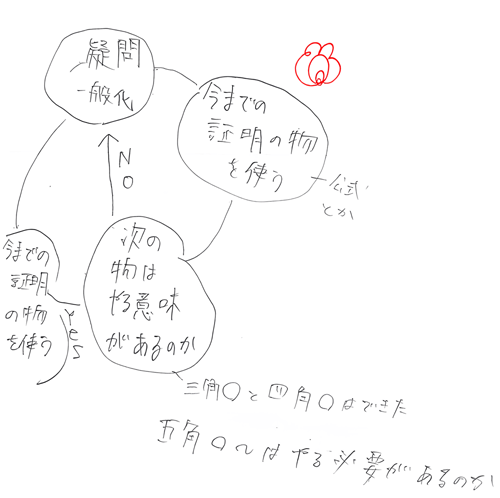 疑問
一般化
今までの
証明の物
を使う
公式
とか
NO
次の
物は
やる意味
があるのか
今までの
証明
の物
を使う
Yes
三角〇と四角〇はできた
五角〇〜はやる必要があるのか